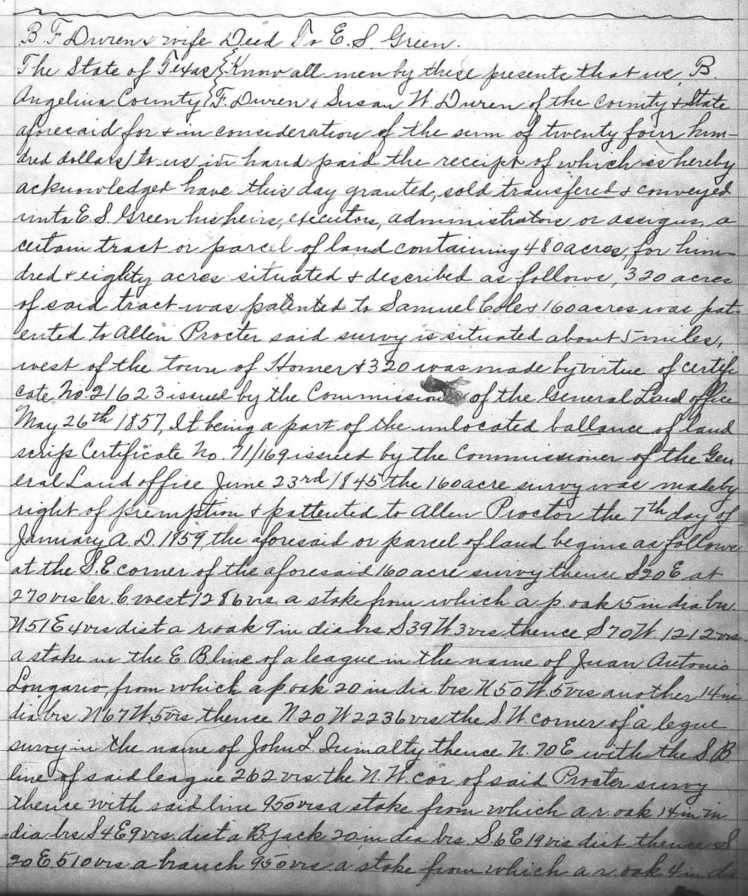 B. F. Duren & wife Deed To E. S. Green.
The State of Texas { Know all men by these presents that we, B.
Angelina County { F. Duren & Susan W Duren of the county & State
aforesaid for & in consideration of the sum of twenty four hun-
dred dollars to us in hand paid the receipt of which is hereby
acknowledged have this day granted, sold transfered & conveyed
unto E. S. Green his heirs, executors, administrators or assigns, a
certain tract or parcel of land containing 480 acres, for hun-
dred & eighty acres situated & described as follows, 320 acres
of said tract was patented to Samuel Coles 160 acres was pat-
ented to Allen Procter said survy is situated about 5 miles,
west of the town of Homer & 320 was made by virtue of certifi
cate No. 21623 issued by the Commission of the General Land office
May 26th 1857, It being a part of the unlocated ballance of land
scrip Certificate No. 71/169 issued by the Commissioner of the Gen
eral Land office June 23rd 1845 the 160 acre survy was made by
right of premption & pattented to Allen Proctor the 7th day of
January A. D. 1859, the aforesaid or parcel of land begins as follows
at the S. E corner of the aforesaid 160 acre survy thence S 20 E at
270 vrs Cr. C west 1286 vrs a stake from which a p. oak 15 in dia brs
N 51 E 4 vrs dist a r. oak 9 in dia brs S 39 W 3 vrs thence S 70 W 1212 vrs
a stake in the E B line of a league in the name of Juan Antonio
from which a p oak 20 in dia brs N 50 W 5 vrs another 14 in
dia brs N 67 W 5 vrs thence N 20 W 2236 vrs the S. W. corner of a legue
survy in the name of John L. thence N. 70 E with the S B
line of said league 262 vrs the N. W. cor of said Procter survy
thence with said line 950 vrs a stake from which a r. oak 14 in in
dia brs S 4 E 9 vrs. dist a B Jack 20 in dia brs S. 6 E 19 vrs dist thence S
20 E 510 vrs a branch 950 vrs a stake from which a r. oak 4 in dia